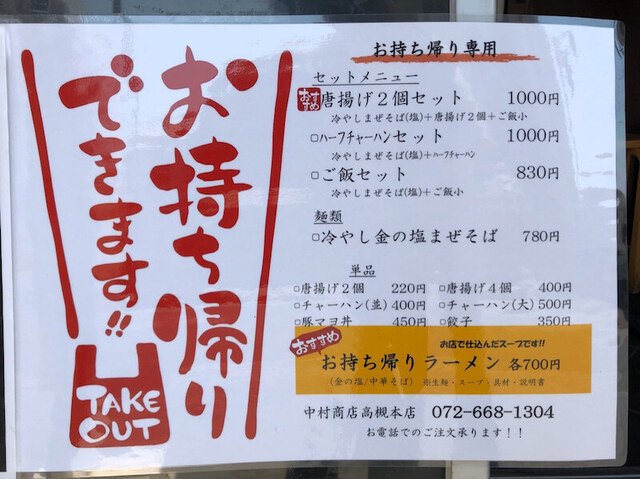 お持ち帰り
できます!!
TAKE
OUT
お持ち帰り専用
セットメニュー
おすすめ
唐揚げ２個セット 1000円
冷やしまぜそば(塩)＋唐揚げ２個＋ご飯小
□ﾊｰﾌﾁｬｰﾊﾝセット 1000円
冷やしまぜそば(塩)＋ﾊｰﾌﾁｬｰﾊﾝ
□ご飯セット 830円
冷やしまぜそば(塩)＋ご飯小
麺類
□冷やし金の塩まぜそば 780円
単品
□唐揚げ２個 220円 □唐揚げ４個 400円
□チャーハン(並) 400円 □チャーハン(大) 500円
□豚マヨ丼 450円 □餃子 350円
おすすめ
お店で仕込んだスープです!!
お持ち帰りラーメン 各700円
(金の塩/中華そば) ※生麺・スープ・具材・説明書
中村商店高槻本店 072-668-1304
お電話でのご注文承ります！！